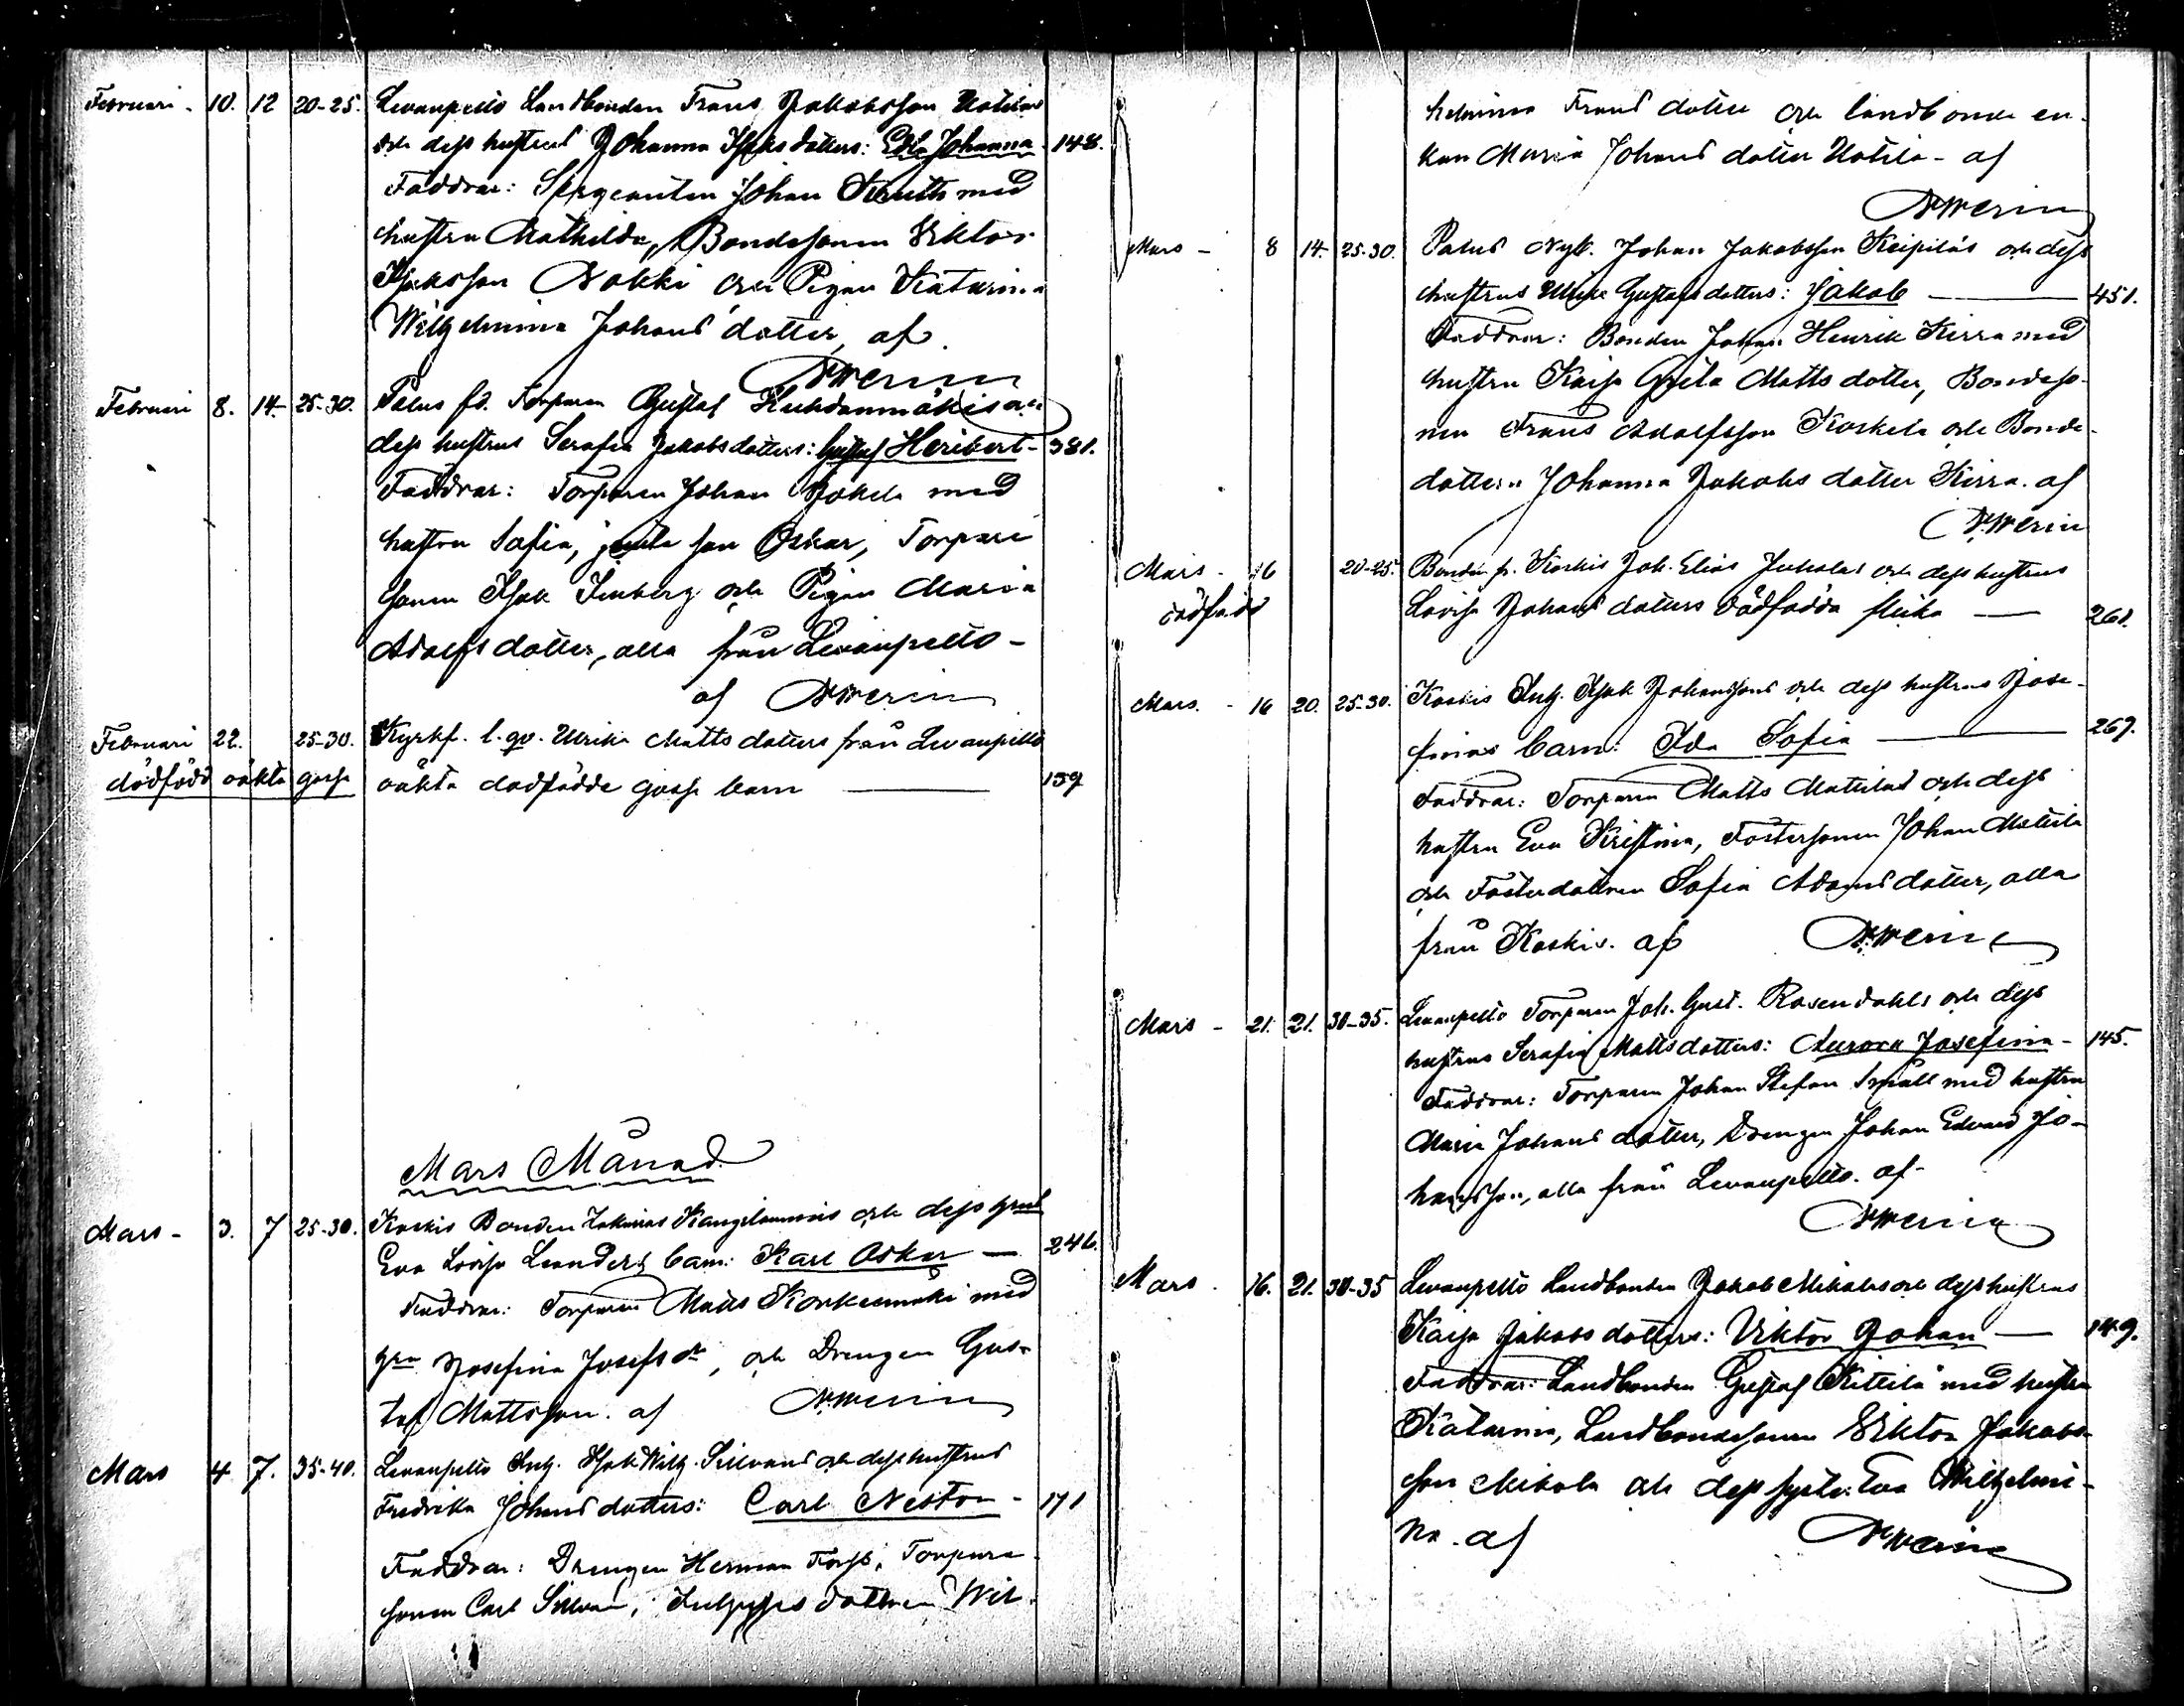 Februari - 10. 12 20-25. Levanpelto Landbonden Frans Jakobsson Uotilas
och dess hustrus Johanna Isaks dotters: Edla Johanna - 148.
Faddrar: Sergeanten Johan Knuth med
hustru Mathilda, Bondesonen Viktor
Isaksson Nokki och Pigan Katarina
Wilhelmina Johans dotter, af
Februari 8. 14. 25-30. Palus fd. Torparen Gustaf Huhdanmäkis och
dess hustrus Serafia Jakobs dotters: Gustaf Heribert - 381.
Faddrar: Torparen Johan Jokela med
hustru Sofia, jemte son Oskar, Torpare
sonen Isak Imberg och Pigan Maria
Adolfs dotter, alla från Levanpelto -
af
Februari 22. 25-30. Kyrkf. l. qv. Ulrika Matts dotters från Levanpelto
dödfödd oäkta gosse oäkta dödfödde gosse barn 159
Mars Månad.
Mars - 3. 7 25-30. Koskis Bonden Zakarias Kangilammis och dess
Eva Lovisa Leanders barn: Karl Oskar - 246.
Faddrar: Torparen Matts Korkeemäki med
Josefina Josefs dr, och Drengen Gus-
taf Mattsson. af
Mars 4. 7. 35-40. Levanpelto Inh. Isak Wilh. Sillvans och dess hustrus
Fredrika Johans dotters: Carl Nestor - 171
Faddrar: Drengen Herman Forss, Torpare
sonen Carl Sillvan, dottren Wil-
helmina Frans dotter och landbonde en-
kan Maria Johans dotter Uotila - af
Mars - 8 14. 25-30. Palus Nyb. Johan Jakobsson Keipiläs och dess
hustrus Ulrika Gustafs dotters: Jakob 451.
Faddrar: Bonden Johan Henrik Kirra med
hustru Kaisa Greta Matts dotter, Bondeso-
nen Frans Adolfsson Koskela och Bonde-
dottern Johanna Jakobs dotter Kirra. af
Mars - 16 20-25. Bonden fr. Koskis Joh. Elias Jukolas och dess hustrus
dödfödd Lovisa Johans dotters dödfödda flicka 261.
Mars. - 16 20. 25-30. Koskis Inh. Isak Johanssons och dess hustrus Jose-
finas barn: Ida Sofia 267.
Faddrar: Torparen Matts Mattilas och dess
hustru Eva Kristina, Fostersonen Johan Mattila
och Fosterdottren Sofia Adams dotter, alla
från Koskis. af
Mars - 21. 21. 30-35. Levanpelto Torparen Joh. Gust. Rosendahls och dess
hustrus Serafia Matts dotters: Aurora Josefina - 145.
Faddrar: Torparen Johan Stefan Småll med hustru
Maria Johans dotter, Drengen Johan Edvard Jo-
hansson, alla från Levanpelto. af
Mars - 16. 21. 30-35 Levanpelto Landbonden Jakob Mikolas och dess hustrus
Kaisa Jakobs dotters: Viktor Johan - 149.
Faddrar: Landbonden Gustaf Kittilä med hustru
Katarina, Landbondesonen Viktor Jakobs-
son Mikola och dess syster Eva Wilhelmi-
na. af